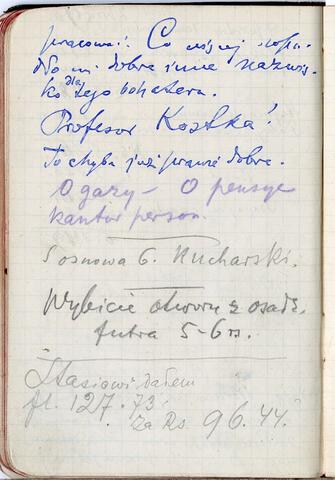 pracować. Co więcej wpa-
dło mi dobre inne nazwis-
ko dla tego bohatera.
Profesor Kostka!
To chyba już prawie dobre.
O gazy – O pensye
kantor person.
Sosnowa 6. Kucharski.
Wybicie otworu z osadz.
futra 5-6 rs.
Stasiowi dałem
fl. 127.73
za Rs. 96.44.